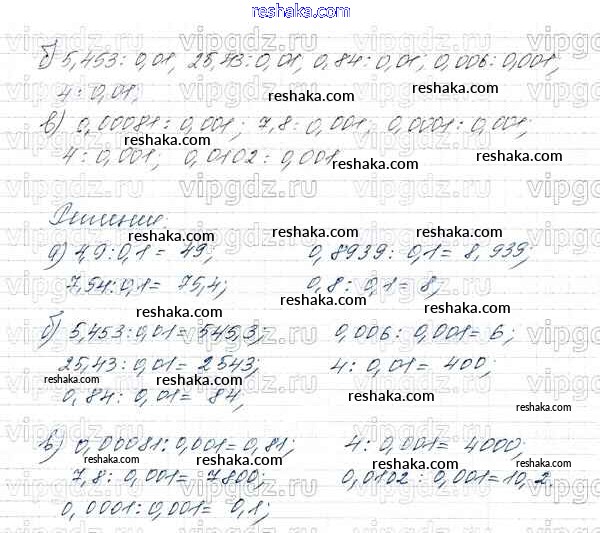 reshaka.com
б) 5,453 : 0,01; 25,43 : 0,01; 0,84 : 0,01; 0,006 : 0,001;
4 : 0,01;
в) 0,00081 : 0,001; 7,8 : 0,001; 0,0001 : 0,001;
4 : 0,001; 0,0102 : 0,001.
Решение.
а) 4,9 : 0,1 = 49; 0,8939 : 0,1 = 8,939;
7,54 : 0,1 = 75,4; 0,8 : 0,1 = 8;
б) 5,453 : 0,01 = 545,3; 0,006 : 0,001 = 6;
25,43 : 0,01 = 2543; 4 : 0,01 = 400;
0,84 : 0,01 = 84;
в) 0,00081 : 0,001 = 0,81; 4 : 0,001 = 4000;
7,8 : 0,001 = 7800; 0,0102 : 0,001 = 10,2.
0,0001 : 0,001 = 0,1;
vipgdz.ru